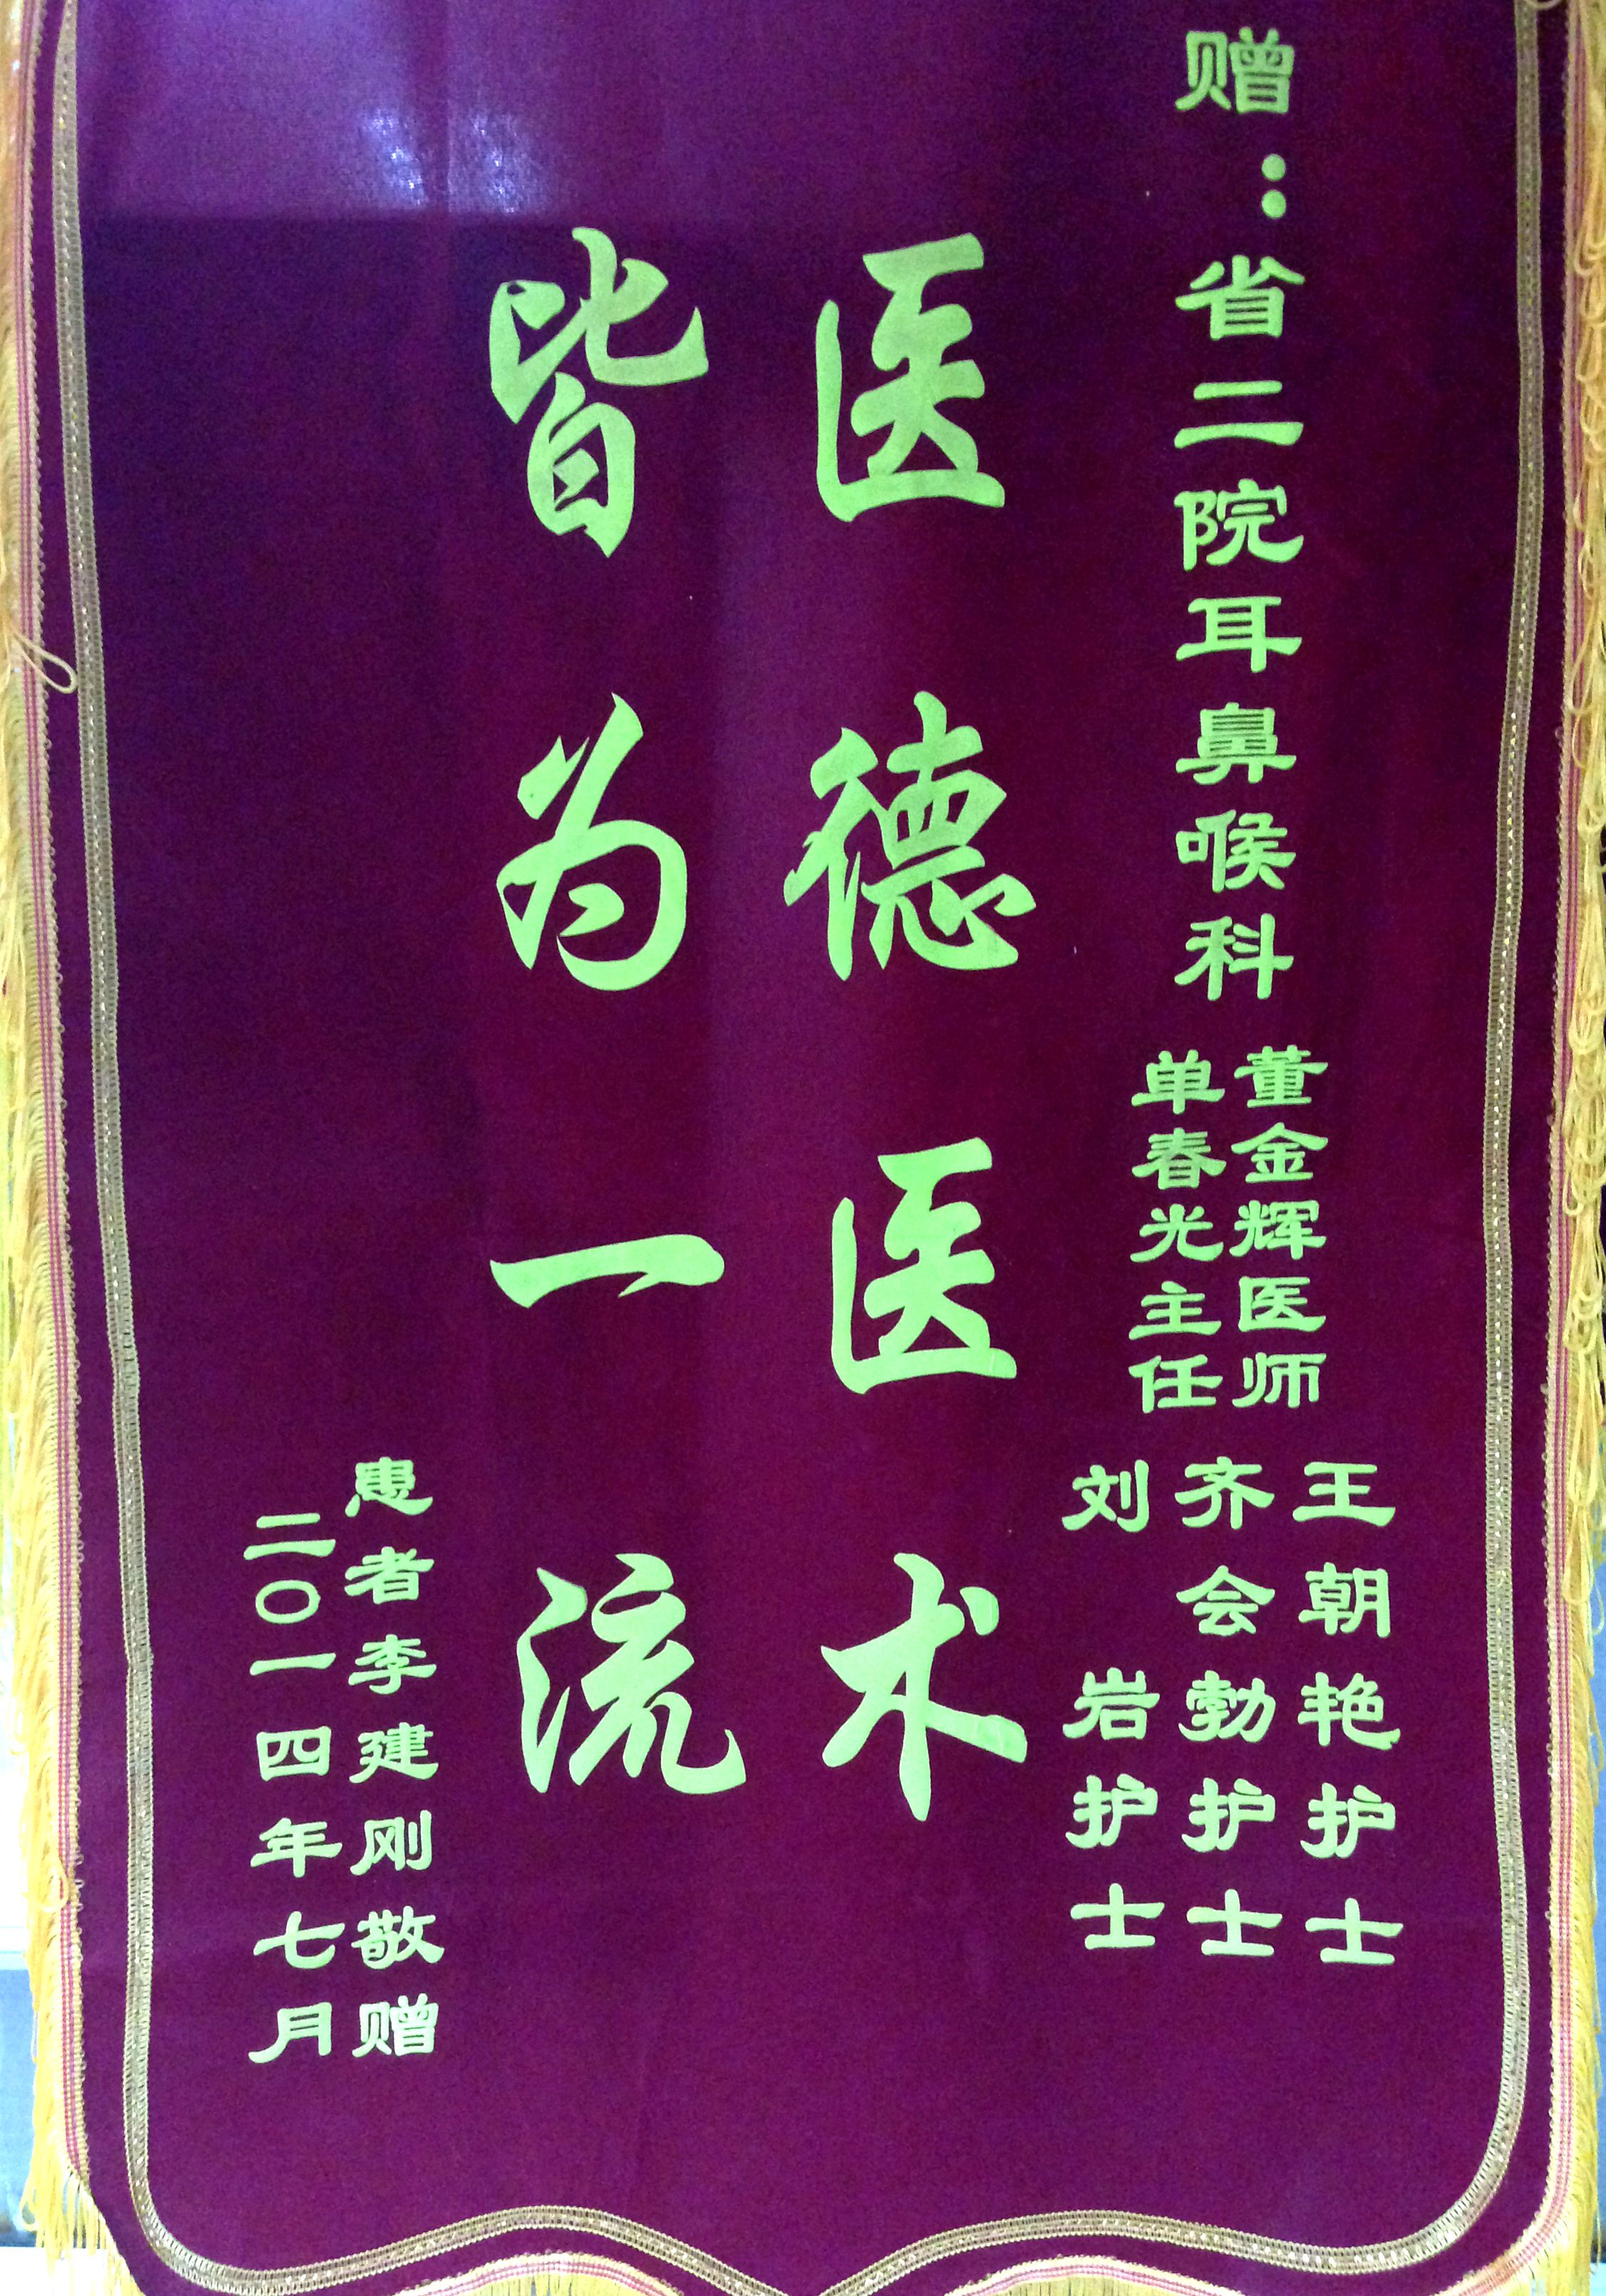 赠：省二院耳鼻喉科
董金辉医师
单春光主任
王朝艳护士
齐会勃护士
刘岩护士
医德医术
皆为一流
患者李建刚敬赠
二〇一四年七月